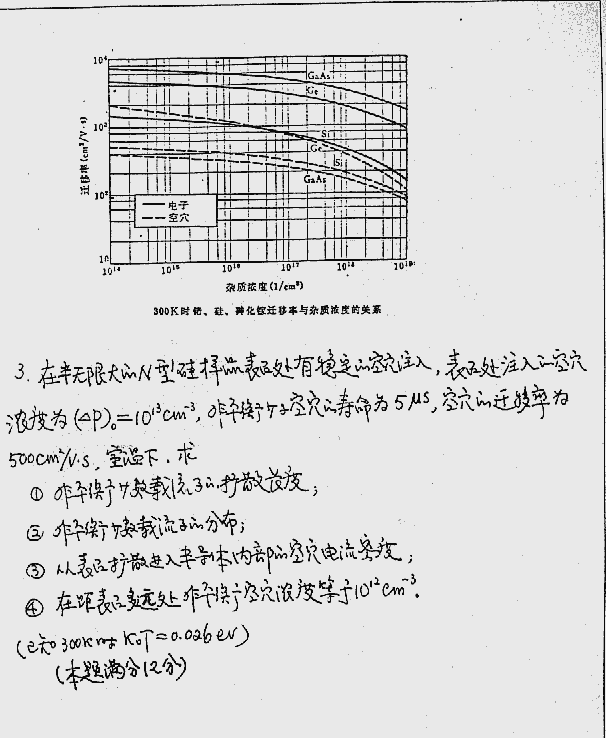 10⁴
迁移率(cm²/V·s)
GaAs
Ge
10³
Si
Ge
Si
GaAs
10²
电子
空穴
10
10¹⁴ 10¹⁵ 10¹⁶ 10¹⁷ 10¹⁸ 10¹⁹
杂质浓度(1/cm³)
300K时锗、硅、砷化镓迁移率与杂质浓度的关系
3. 在半无限大的N型硅样品表面处有稳定的空穴注入,表面处注入的空穴
浓度为(ΔP)₀=10¹³cm⁻³,非平衡少子空穴的寿命为5μs,空穴的迁移率为
500cm²/V·s,室温下,求
① 非平衡少数载流子的扩散长度;
② 非平衡少数载流子的分布;
③ 从表面扩散进入半导体内部的空穴电流密度;
④ 在距表面多远处非平衡空穴浓度等于10¹²cm⁻³.
(已知300K时K₀T=0.026eV)
(本题满分12分)